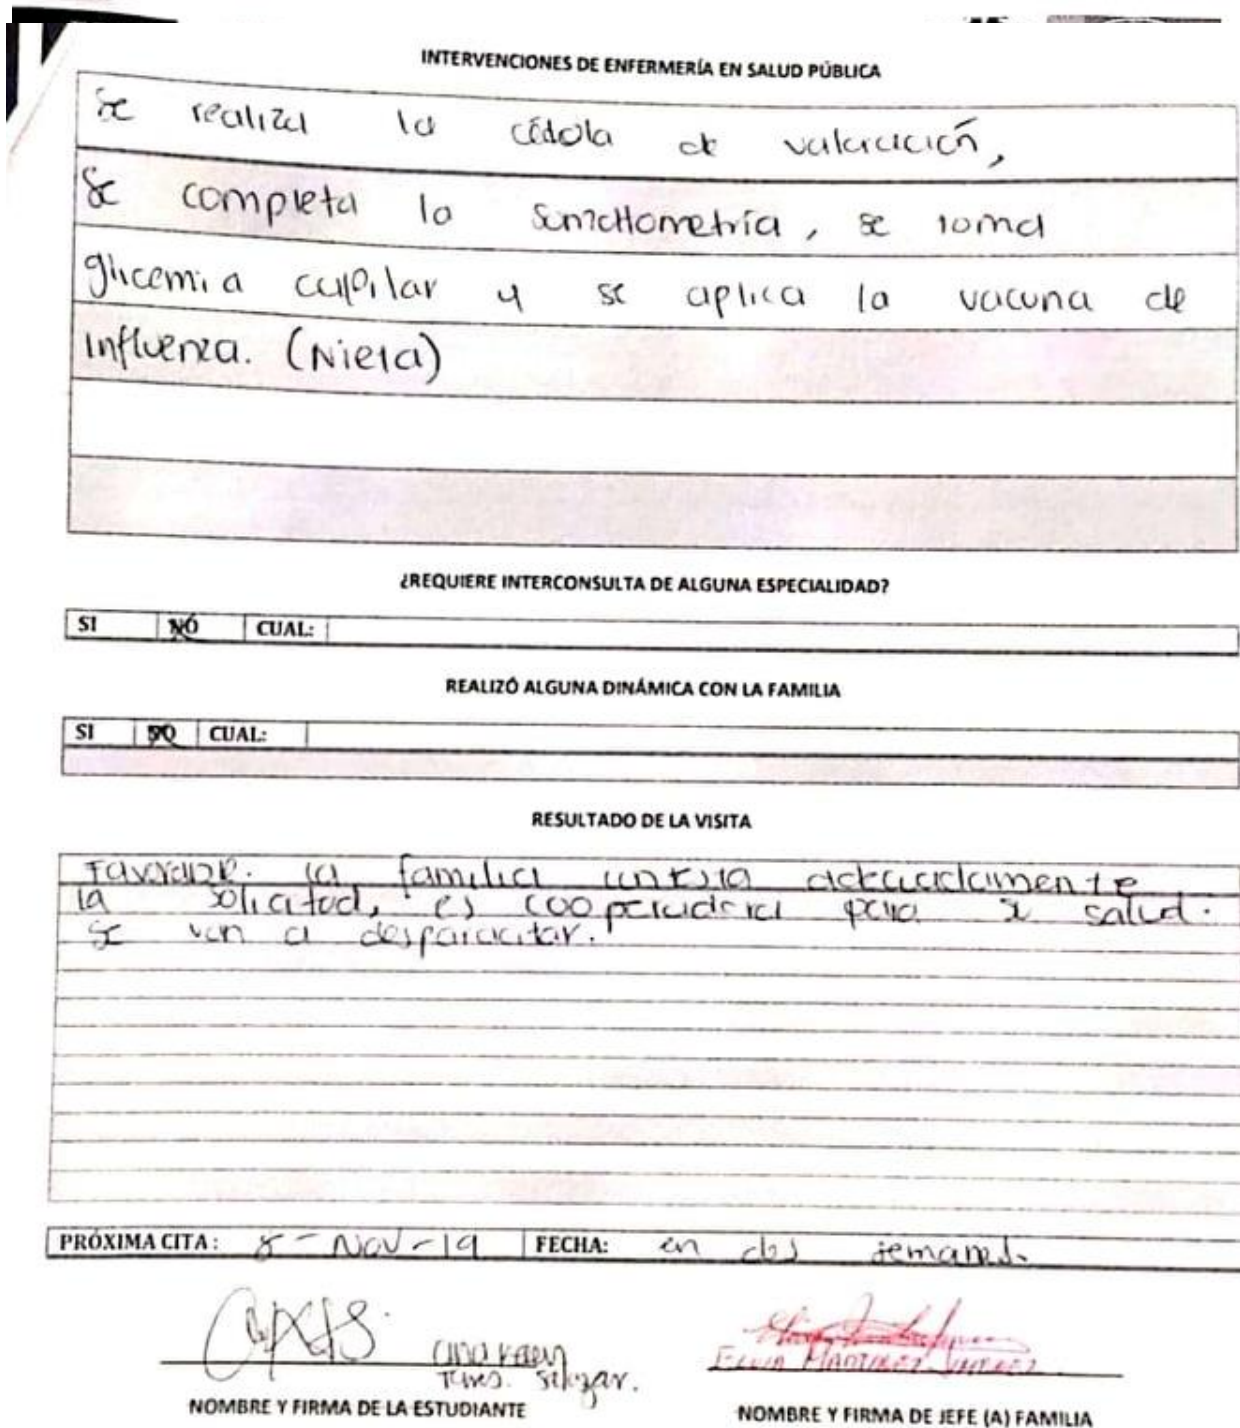 INTERVENCIONES DE ENFERMERÍA EN SALUD PÚBLICA
Se realiza la cédola de valoración,
Se completa la somatometría, se toma
glicemia capilar y se aplica la vacuna de
influenza. (Nieta)
¿REQUIERE INTERCONSULTA DE ALGUNA ESPECIALIDAD?
SI NÓ CUAL:
REALIZÓ ALGUNA DINÁMICA CON LA FAMILIA
SI NO CUAL:
RESULTADO DE LA VISITA
Favorable. la familia contesta adecuadamente
la solicitud, es cooperadora para su salud.
se van a desparacitar.
PRÓXIMA CITA: 8-Nov-19 FECHA: en dos semanas.
Karen
Salazar.
MARTINEZ
NOMBRE Y FIRMA DE LA ESTUDIANTE NOMBRE Y FIRMA DE JEFE (A) FAMILIA